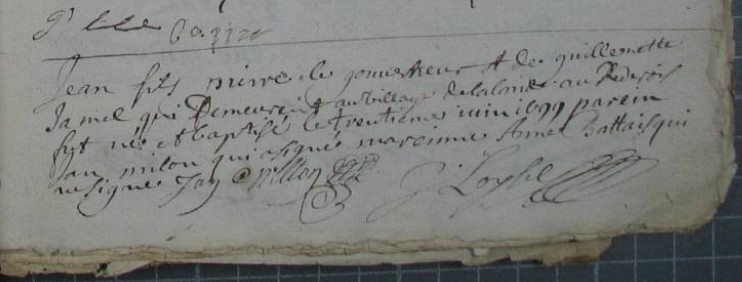 Jean fils pierre le gouverneur et de guillemette
Jamel qui Demeurent au village de la lande au
fut né et baptisé le trentieme iuin 1699 parein
Jan milon qui a signé mareinne Anne Battais qui
ne signe Jan Millon J Loysel